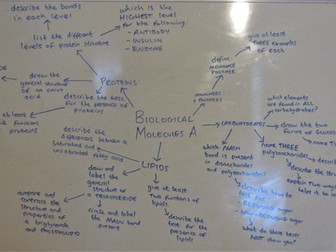 describe the bonds
in each level
list the different
levels of protein structure
which is the
HIGHEST level
for the following:
- ANTIBODY
- INSULIN
- ENZYME
draw the
general structure
of an amino
acid
PROTEINS
describe the test
for the presence of
proteins
at least
functions
proteins
BIOLOGICAL
MOLECULES A
define
MONOMER
POLYMER
give at least
THREE examples
of each
MONOMERS + POLYMERS
CARBOHYDRATES
which elements
are found in ALL
carbohydrates?
draw the TWO
forms of GLUCOSE
name THREE
polysaccharides
which MAIN
bond is present
in disaccharides
and polysaccharides?
describe how to
test for
REDUCING sugar
NON-REDUCING sugar
explain TWO ways
helps it
what do these
tests NOT
show you?
LIPIDS
describe the
difference between a
saturated and
unsaturated fatty acid
draw and label
the general
structure of
a TRIGLYCERIDE
circle and label
the MAIN bond
present
compare and
contrast the
structure and
properties of
a triglyceride
and PHOSPHOLIPID
give at least
two functions of
lipids
describe the
test for the
presence of
lipids